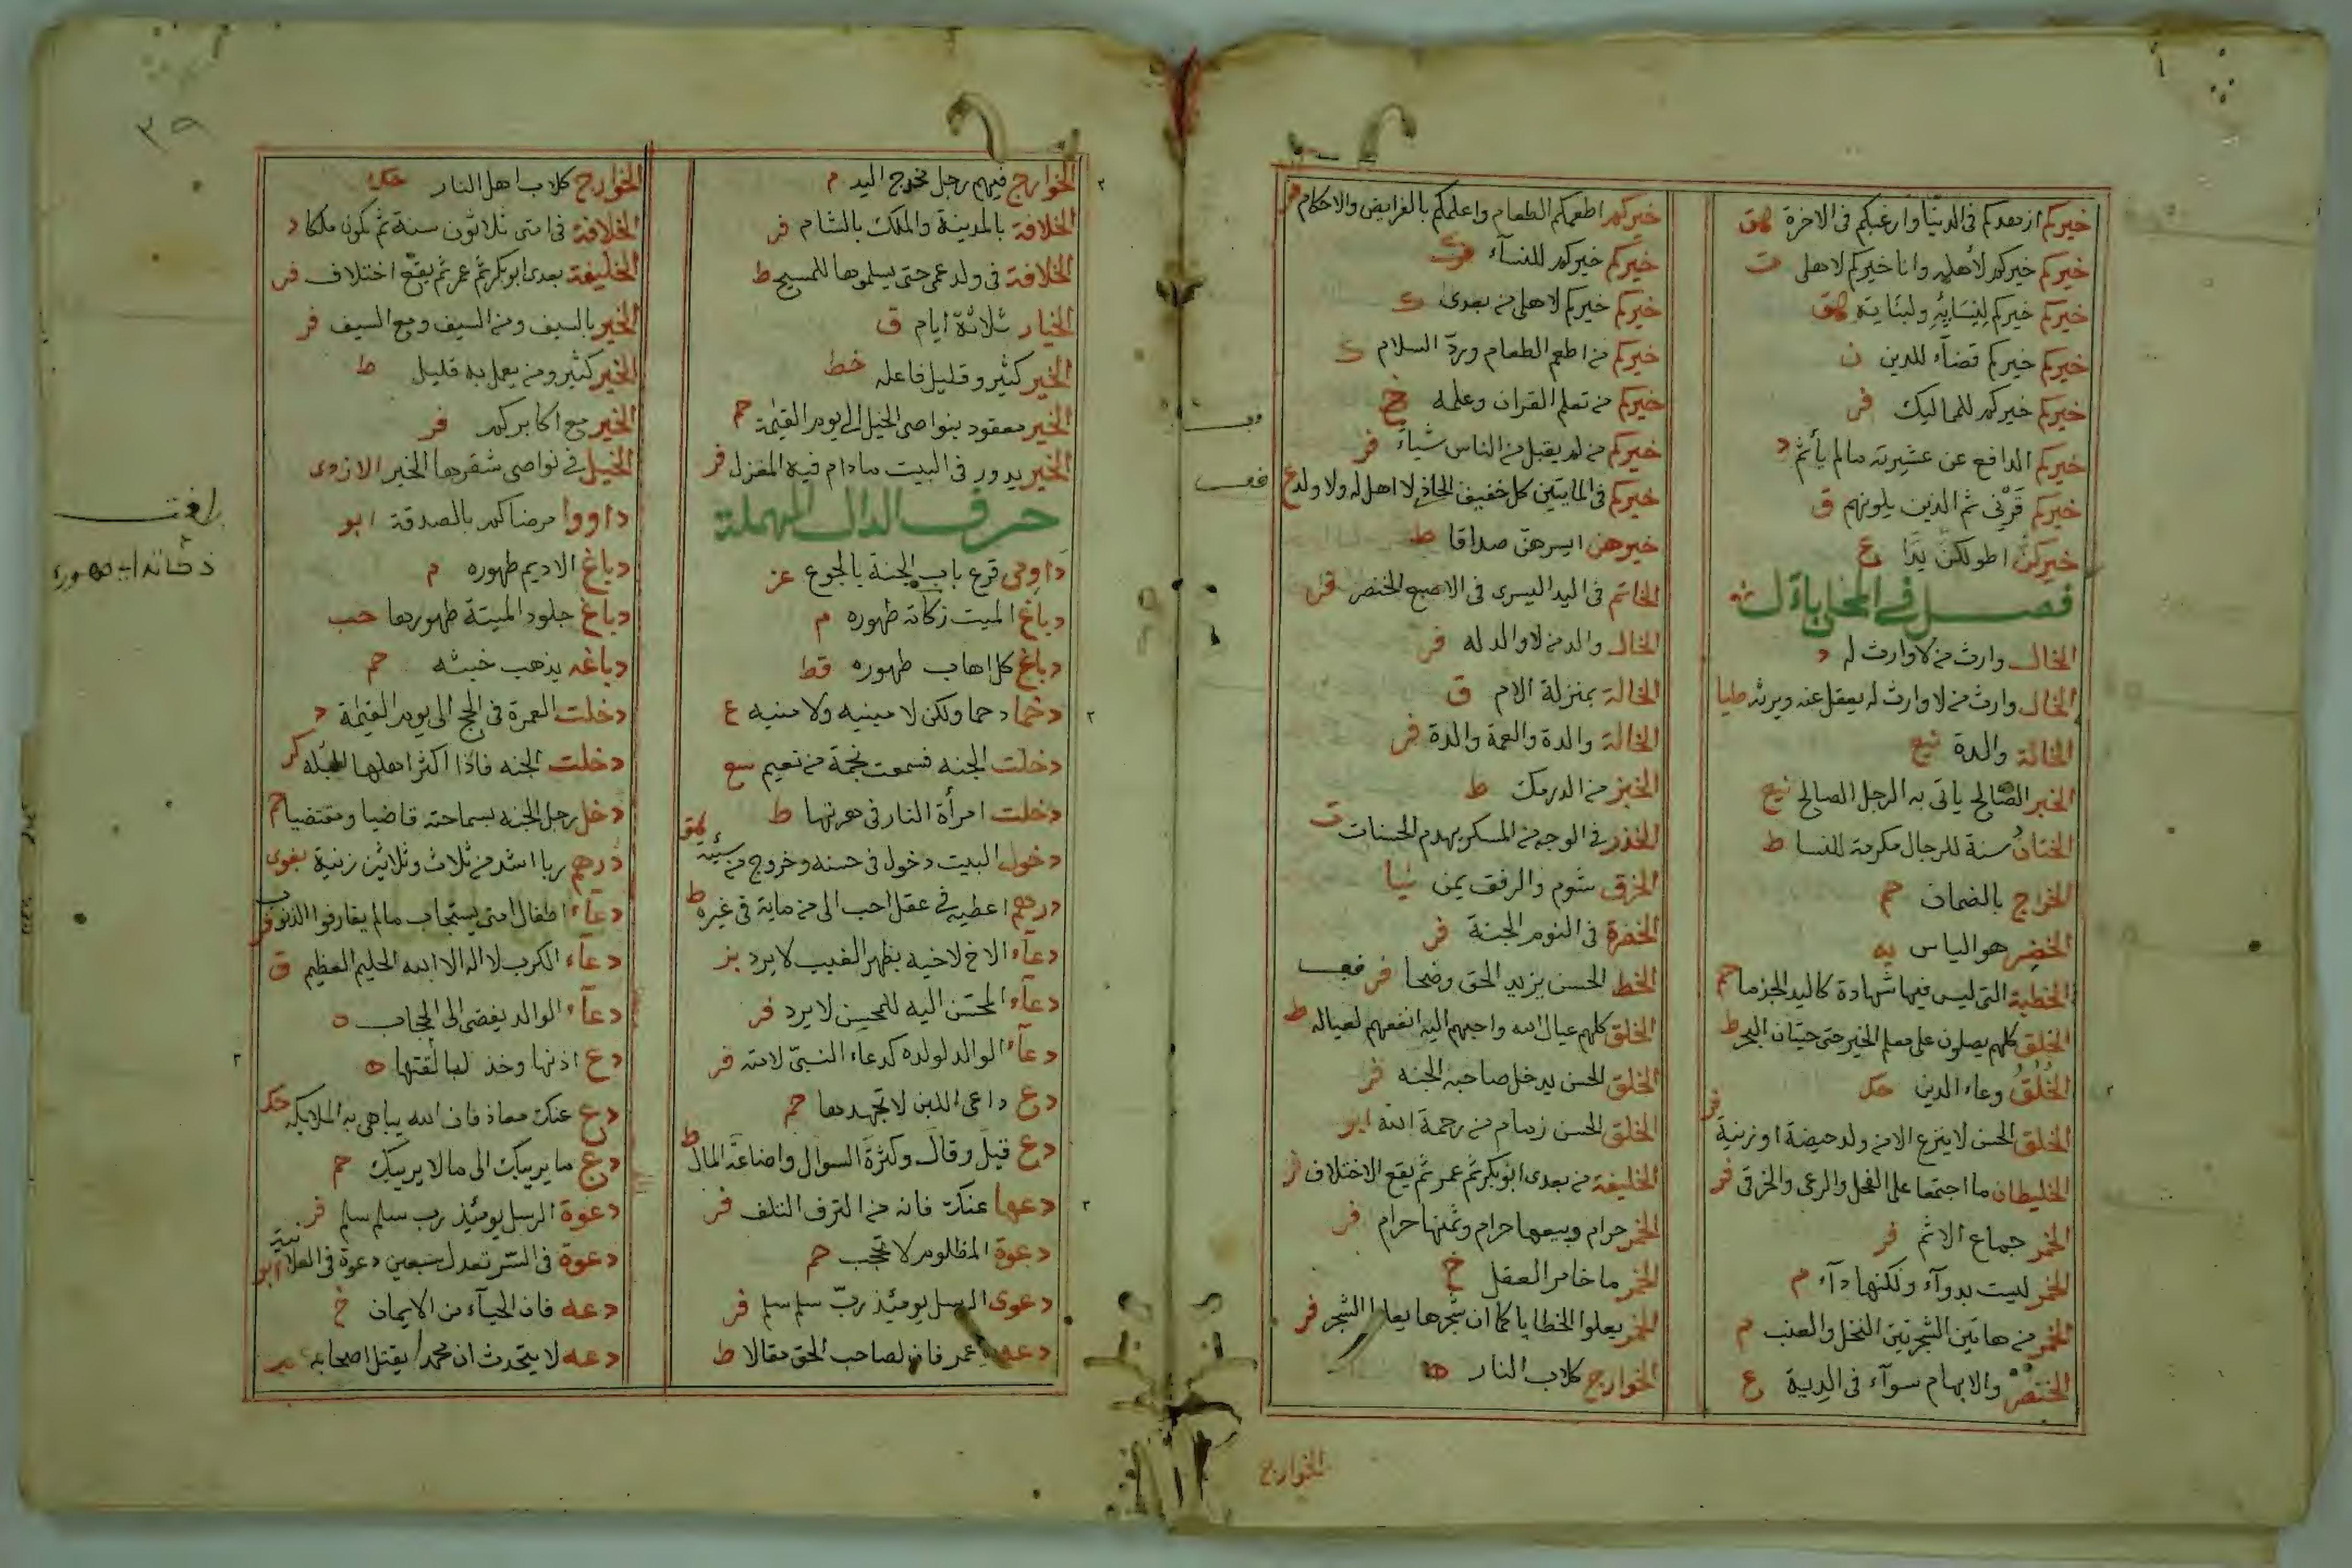 خيركم ازهدكم فى الدنيا وارغبكم فى الاخرة هق
خيركم خيركم لأهله وانا خيركم لاهلى ت
خيركم خيركم لِنِسَائِهِ ولبناته هق
خيركم خيركم قضآء للدين ن
خيركم خيركم للمماليك فر
خيركم الدافع عن عشيرته مالم يأثم د
خيركم قَرْنى ثم الذين يلونهم ق
خيركنّ اطولكنّ يدًا ع
فصل فى المحلى بال منه
الخال وارث من لا وارث له د
الخال وارث من لا وارث له يعقل عنه ويرثه طيا
الخالة والدة سع
الخبر الصّالح ياتى به الرجل الصالح نيع
الختان سنة للرجال مكرمة للنسا ط
الخراج بالضمان حم
الخضر هو الياس يه
الخطبة التى ليس فيها شهادة كاليد الجذما حم
الخلق كلهم يصلون على معلم الخير حتى حيتان البحر ط
الخُلُقُ وعاء الدين حك
الخلق الحسن لا ينزع الا من ولد حيضة او زنية فر
الخليطان ما اجتمعا على الفحل والرعى والخرقى فر
الخمر جماع الاثم فر
الخمر ليست بدوآء ولكنها دآء م
الخمر من هاتين الشجرتين النخل والعنب م
الخنصر والابهام سوآء فى الدية ع
خيركم اطعمكم الطعام واعلمكم بالفرايض والاحكام
خيركم خيركم للنسآء ك
خيركم خيركم لاهلى من بعدى ك
خيركم من اطعم الطعام وردّ السلام ك
خيركم من تعلم القران وعلمه خ
خيركم من لم يقبل من الناس شياءً فر
خيركم فى المايتين كل خفيف الحاذ لا اهل له ولا ولد ع
خيرهن ايسرهنّ صداقا ط
الخاتم فى اليد اليسرى فى الاصبع الخنصر فر
الخال والد من لا والد له فر
الخالة بمنزلة الام ق
الخالة والدة والعمة والدة فر
الخبز من الدرمك ط
الخدر فى الوجه من المسكر يهدم الحسنات ت
الخرق شوم والرفق يمن نيا
الخضرة فى النوم الجنة فر
الخط الحسن يزيد الحق وضحا فر
الخلق كلهم عيال الله واحبهم اليه انفعهم لعياله ط
الخلق الحسن يدخل صاحبه الجنه فر
الخلق الحسن زمام من رحمة الله ابو
الخليفة من بعدى ابو بكر ثم عمر ثم يقع الاختلاف فر
الخمر حرام وبيعها حرام وثمنها حرام فر
الخمر ما خامر العقل خ
الخمر يعلوا الخطايا كما ان شجرها يعلوا الشجر فر
الخوارج كلاب النار ه
الخوارج
٣٩
الخوارج فيهم رجل مخدج اليد م
الخلافة بالمدينة والملك بالشام فر
الخلافة فى ولد عمى حتى يسلموها للمسيح ط
الخيار ثلاثة ايام ق
الخير كثير وقليل فاعله خط
الخير معقود بنواصى الخيل الى يوم القيمة حم
الخير يدور فى البيت مادام فيه المغزل فر
حرف الدال المهملة
داومى قرع باب الجنة بالجوع عز
دباغ الميت زكاته طهوره م
دباغ كل اهاب طهوره قط
دحما دحما ولكن لا منيه ولا منيه ع
دخلت الجنه فسمعت نحمة من نعيم سع
دخلت امرأة النار فى هرتها ط
دخول البيت دخول فى حسنه وخروج من سيئه هق
درهم اعطيه فى عقل احب الى من ماية فى غيره ط
دعآء الاخ لاخيه بظهر الغيب لا يرد بز
دعآء المحسَن اليه للمحسِن لا يرد فر
دعآء الوالد لولده كدعاء النبىّ لامته فر
دع داعى اللبن لا تجهدها حم
دع قيل وقال وكثرة السوال واضاعة المال ط
دعها عنك فانه من القرف التلف فر
دعوة المظلوم لا تحجب حم
دعوى الرسل يومئذ ربّ سلم سلم فر
دعه عمر فان لصاحب الحق مقالا ط
الخوارج كلاب اهل النار حك
الخلافة فى امتى ثلاثون سنة ثم تكون ملكا د
الخليفة بعدى ابو بكر ثم عمر ثم يقع اختلاف فر
الخير بالسيف ومن السيف ومع السيف فر
الخير كثير ومن يعمل به قليل ط
الخير مع اكابركم فر
الخيل فى نواصى شقرها الخير الازدى
داووا مرضاكم بالصدقة ابو
دباغ الاديم طهوره م
دباغ جلود الميتة طهورها حب
دباغه يذهب خبثه حم
دخلت العمرة فى الحج الى يوم القيمة د
دخلت الجنه فاذا اكثر اهلها البله كر
دخل رجل الجنه بسماحته قاضيا ومقتضيا حم
درهم ربا اشد من ثلاث وثلاثين زنية بغوى
دعآء اطفال امتى يستجاب مالم يقارفوا الذنوب فر
دعآء الكرب لا اله الا الله الحليم العظيم ق
دعآء الوالد يفضى الى الحجاب ه
دع اذنها وخذ لسالفتها ه
دع عنك معاذ فان الله يباهى به الملايكه حك
دع ما يريبك الى ما لا يريبك حم
دعوة الرسل يومئذ رب سلم سلم فر
دعوة فى السّر تعدل سبعين دعوة فى العلانية ابو
دعه فان الحيآء من الايمان خ
دعه لا يتحدث ان محمدا يقتل اصحابه